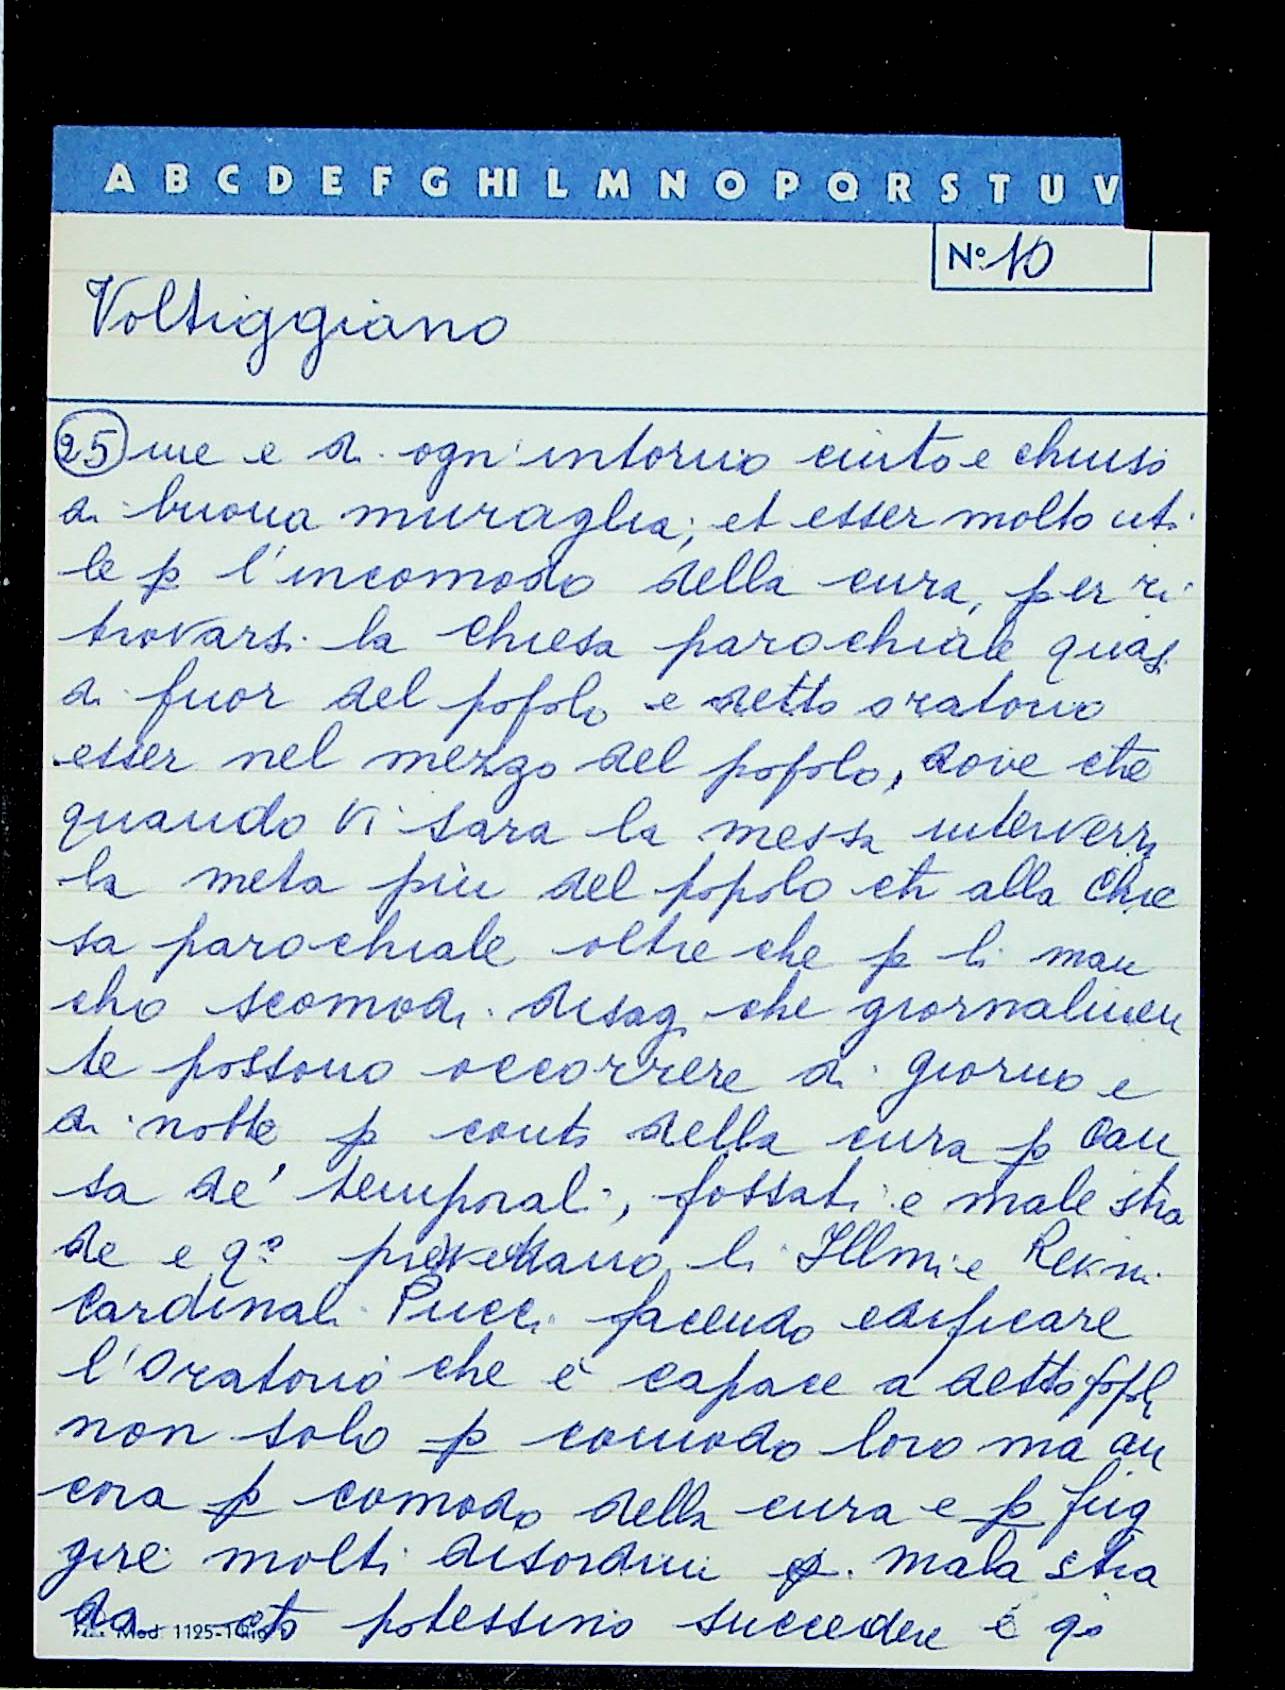 A B C D E F G HI L M N O P Q R S T U V
Nº 10
Voltiggiano
25 me e di ogn'intorno cinto e chiuso
di buona muraglia; et esser molto uti
le p l'incomodo della cura, per ri
trovarsi la chiesa parochiale quasi
di fuor del popolo e detto oratorio
esser nel mezzo del popolo, dove che
quando vi sara la messa interverrà
la meta piu del popolo che alla Chie
sa parochiale oltre che p li man
cho scomodi disagi che giornalmen
te possono occorrere di giorno e
di notte p conto della cura p cau
sa de' temporali, fossati e male stra
de e qº li Illmi e Revmi
Cardinali Pucci facendo edificare
l'Oratorio che è capace a detto popolo
non solo p comodo loro ma an
cora p comodo della cura e p fug
gire molti disordini p. mala stra
da potessino succedere e qº
Mod. 1125-1